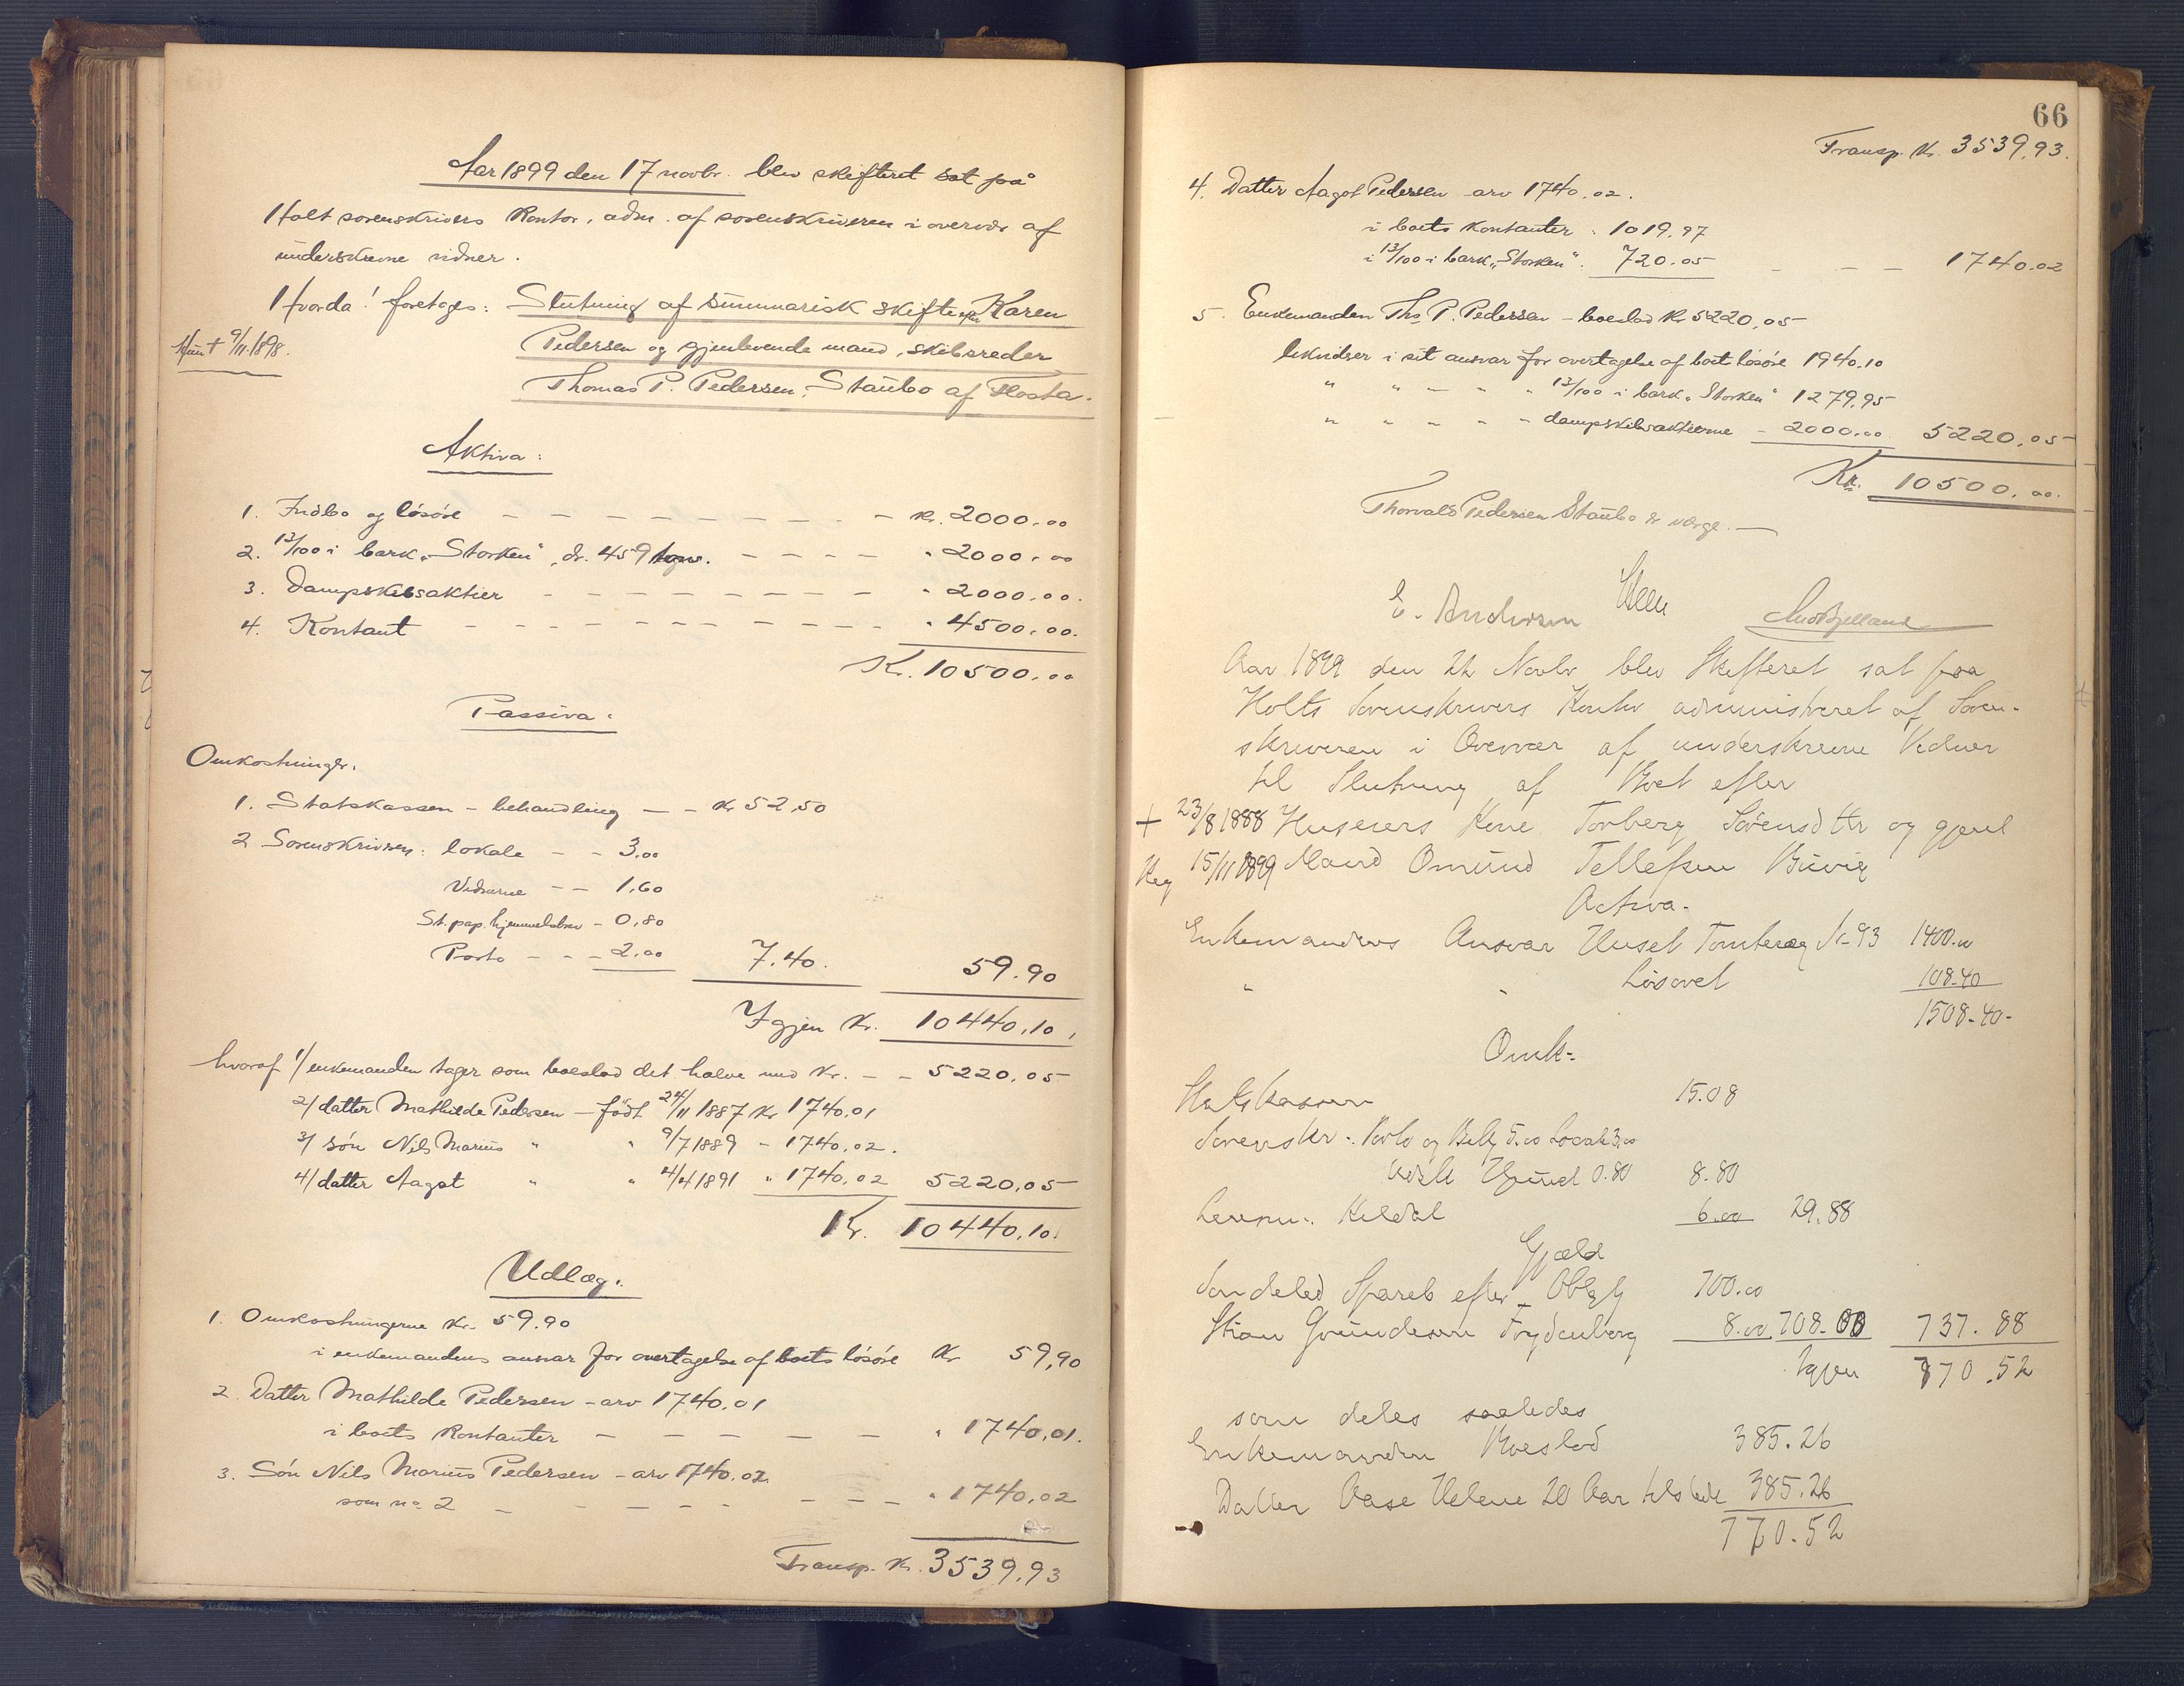 Aar 1899 den 17 novbr. blev skiftet sat på
Holt sorenskrivers Kontor, adm. af sorenskriveren i overvær af
underskrevne vidner.
Hvorda! foretoges: Slutning af summarisk skifte efter Karen
Pedersen og gjenlevende mand, skibsreder
Thomas P. Pedersen, Staubo af Flosta.
9/11 1898.
Aktiva:
1. Indbo og løsøre — — — — Kr. 2000.00
2. 13/100 i bark „Storken“, dr. 459 tons. — — — " 2000.00
3. Dampskibsaktier — — — — " 2000.00.
4. Kontant — — — — " 4500.00.
Kr. 10500.00
Passiva:
Omkostninger.
1. Statskassen – behandling — – Kr 52,50
2 Sorenskriveren: lokale – – 3.00
Vidnerne – – 1.60
St. pap. hjemmelsbrev – 0,80
Porto – – – 2.00 7.40. 59.90
Igjen Kr. 10440.10,
hvoraf 1/ enkemanden tager som boeslod det halve med Kr. – – 5220.05
2/ datter Mathilde Pedersen – født 24/11 1887 Kr 1740.01
3/ søn Nils Marius " " 9/7 1889 – 1740.02.
4/ datter Aagot " " 4/4 1891 " 1740.02 5220,05
Kr. 10440,10.
Udlæg.
1. Omkostningerne Kr. 59.90
i enkemandens ansvar for overtagelse af boets løsøre Kr 59,90
2. Datter Mathilde Pedersen – arv 1740.01
i boets Kontanter — — — — — " 1740,01.
3. Søn Nils Marius Pedersen – arv 1740.02
som no 2 — — — — — " 1740,02
Transp. Kr. 3539,93
66
Transp. Kr. 3539,93.
4. Datter Aagot Pedersen – arv 1740,02.
i boets Kontanter : 1019,97
i 13/100 i bark „Storken“. 720.05 – – – 1740.02
5. Enkemanden Ths. P. Pedersen – boeslod Kr 5220,05
likvidrer i sit ansvar for overtagelse af boets løsøre 1940,10
" " – – " 13/100 i bark „Storken“ 1279,95
" " – – – dampskibsaktierne – 2000.00 5220.05
Kr. 10500.00.
Thorvald Pedersen Staubo er værge. —
E. Andersen
Aar 1899 den 22 Novbr blev Skifteret sat paa
Holts Sorenskrivers Kontor administreret af Soren-
skriveren i Overvær af underskrevne Vidner
til Slutning af Boet efter
+ 23/8 1888 Huseiers Kone Torberg Sørensdtr og gjenl
Reg 15/11 1899 Mand Omund Tellefsen Buvig
Activa.
Enkemandens Ansvar Huset Tomteræg No 93 1400.00
" " Løsøret 108.40
1508.40.
Omk:
Statskassen 15.08
Sorenskr.: Porto og Bekg 5.00 Locale 3.00
0.80 8.80
Lensm: Kildal 6.00 29.88
Gjæld
Søndeled Spareb efter Oblg 700.00
8.00 708.00 737.88
Igjen 770.52
som deles saaledes
Enkemanden Boeslod 385.26
Datter Aase Helene 20 Aar tilstede 385.26
770.52